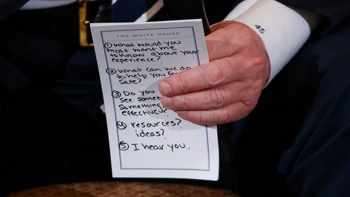 THE WHITE HOUSE
① What would you
most want me
to know about your
experience?
② What can we do
to help you feel
safe?
③ Do you
see some
something
effective?
④ Resources?
ideas?
⑤ I hear you.
45